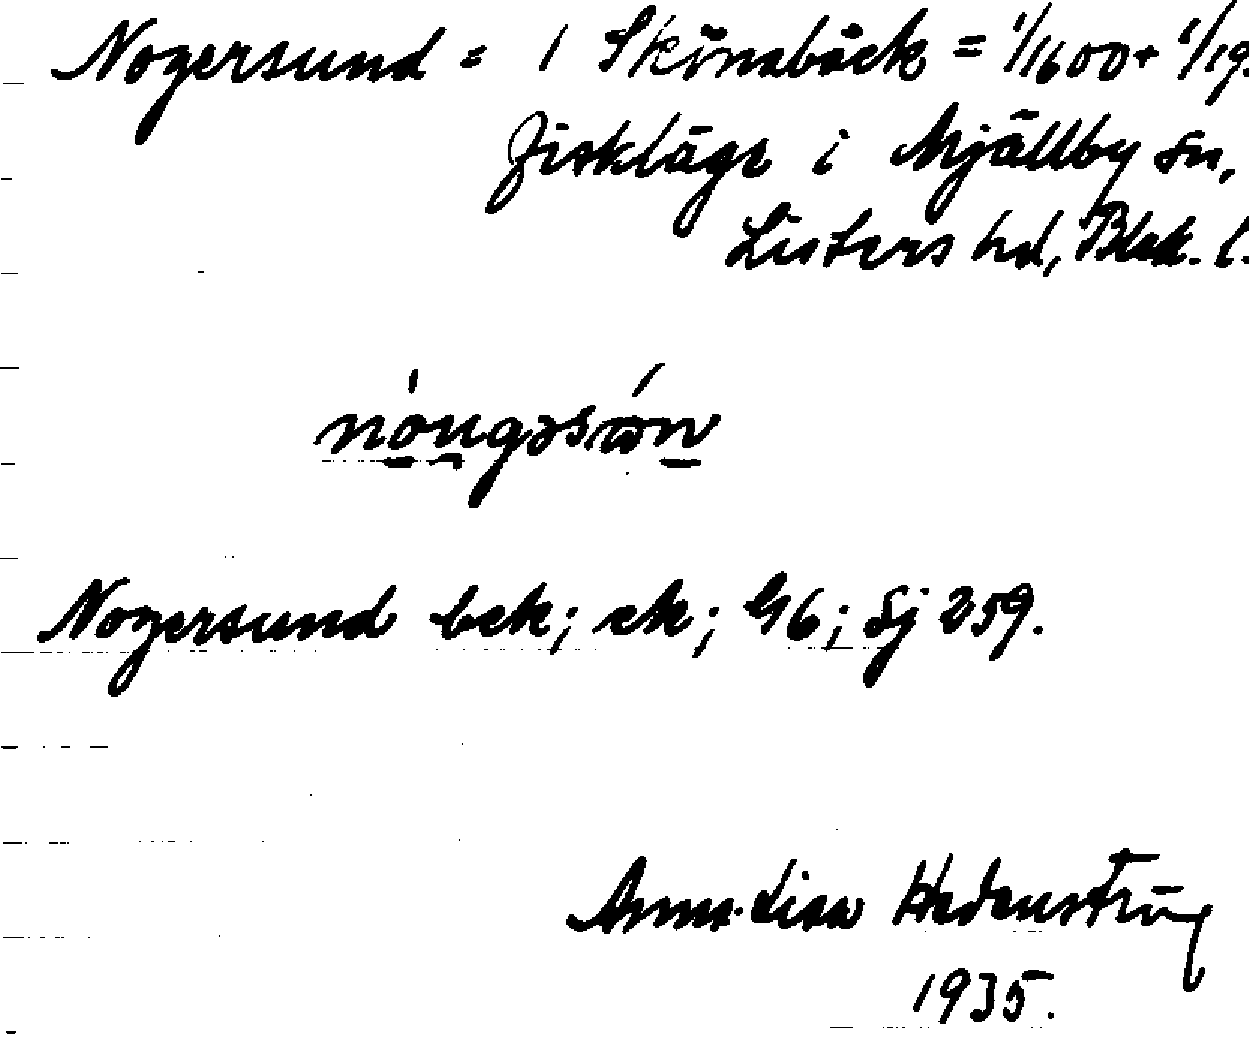 Nogersund = 1 Skönabäck = 1/1600 + 1/19
Fiskläge i Mjällby sn,
Listers hd, Blek. l.
Nogersund bek; ek; G6; Sj 259.
Anna-Lisa Hedenström
1935.